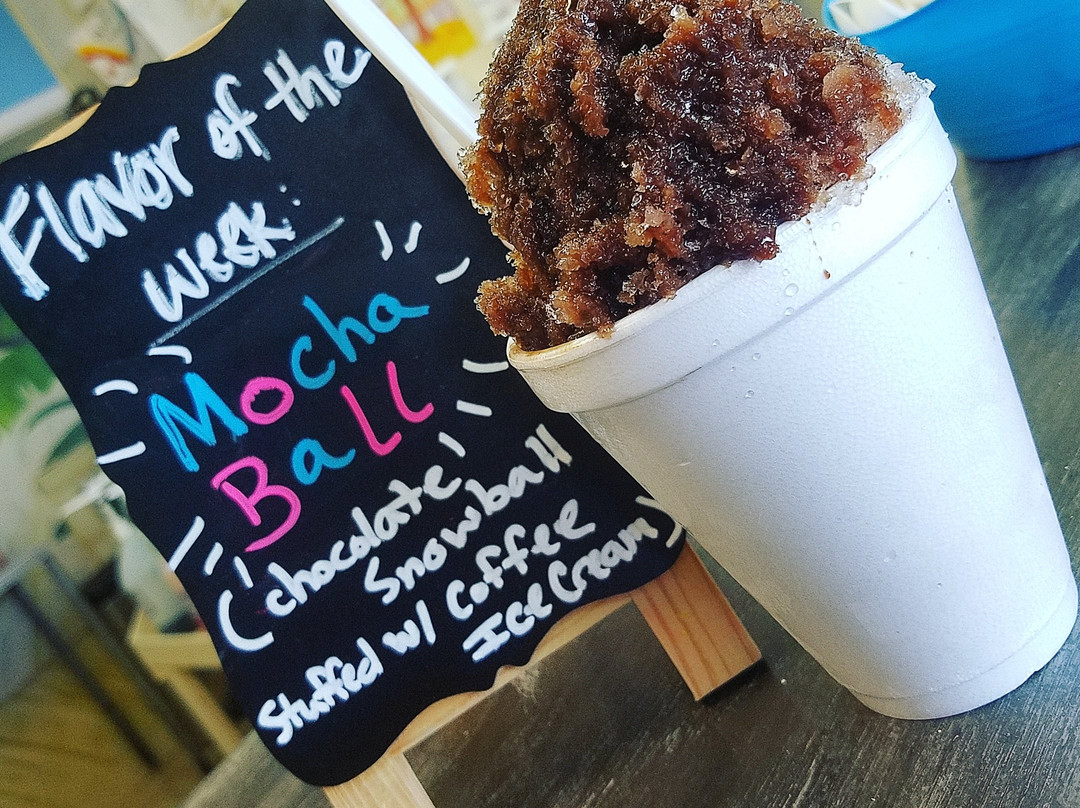 Flavor of the
week:
Mocha
Ball
(chocolate
Snowball
Stuffed w/ Coffee
Ice Cream)